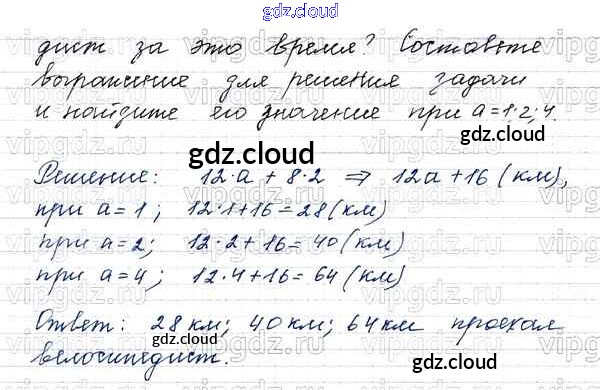 gdz.cloud
дист за это время? Составьте
выражение для решения задачи
и найдите его значение при a=1;2;4.
gdz.cloud
gdz.cloud
Решение: 12·a+8·2 ⇒ 12a+16 (км),
при a=1; 12·1+16=28(км)
при a=2; 12·2+16=40(км)
при a=4; 12·4+16=64(км)
Ответ: 28км; 40км; 64км проехал
велосипедист.
gdz.cloud
gdz.cloud